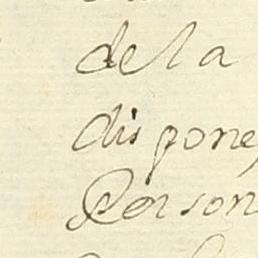 de la
dispone
Person